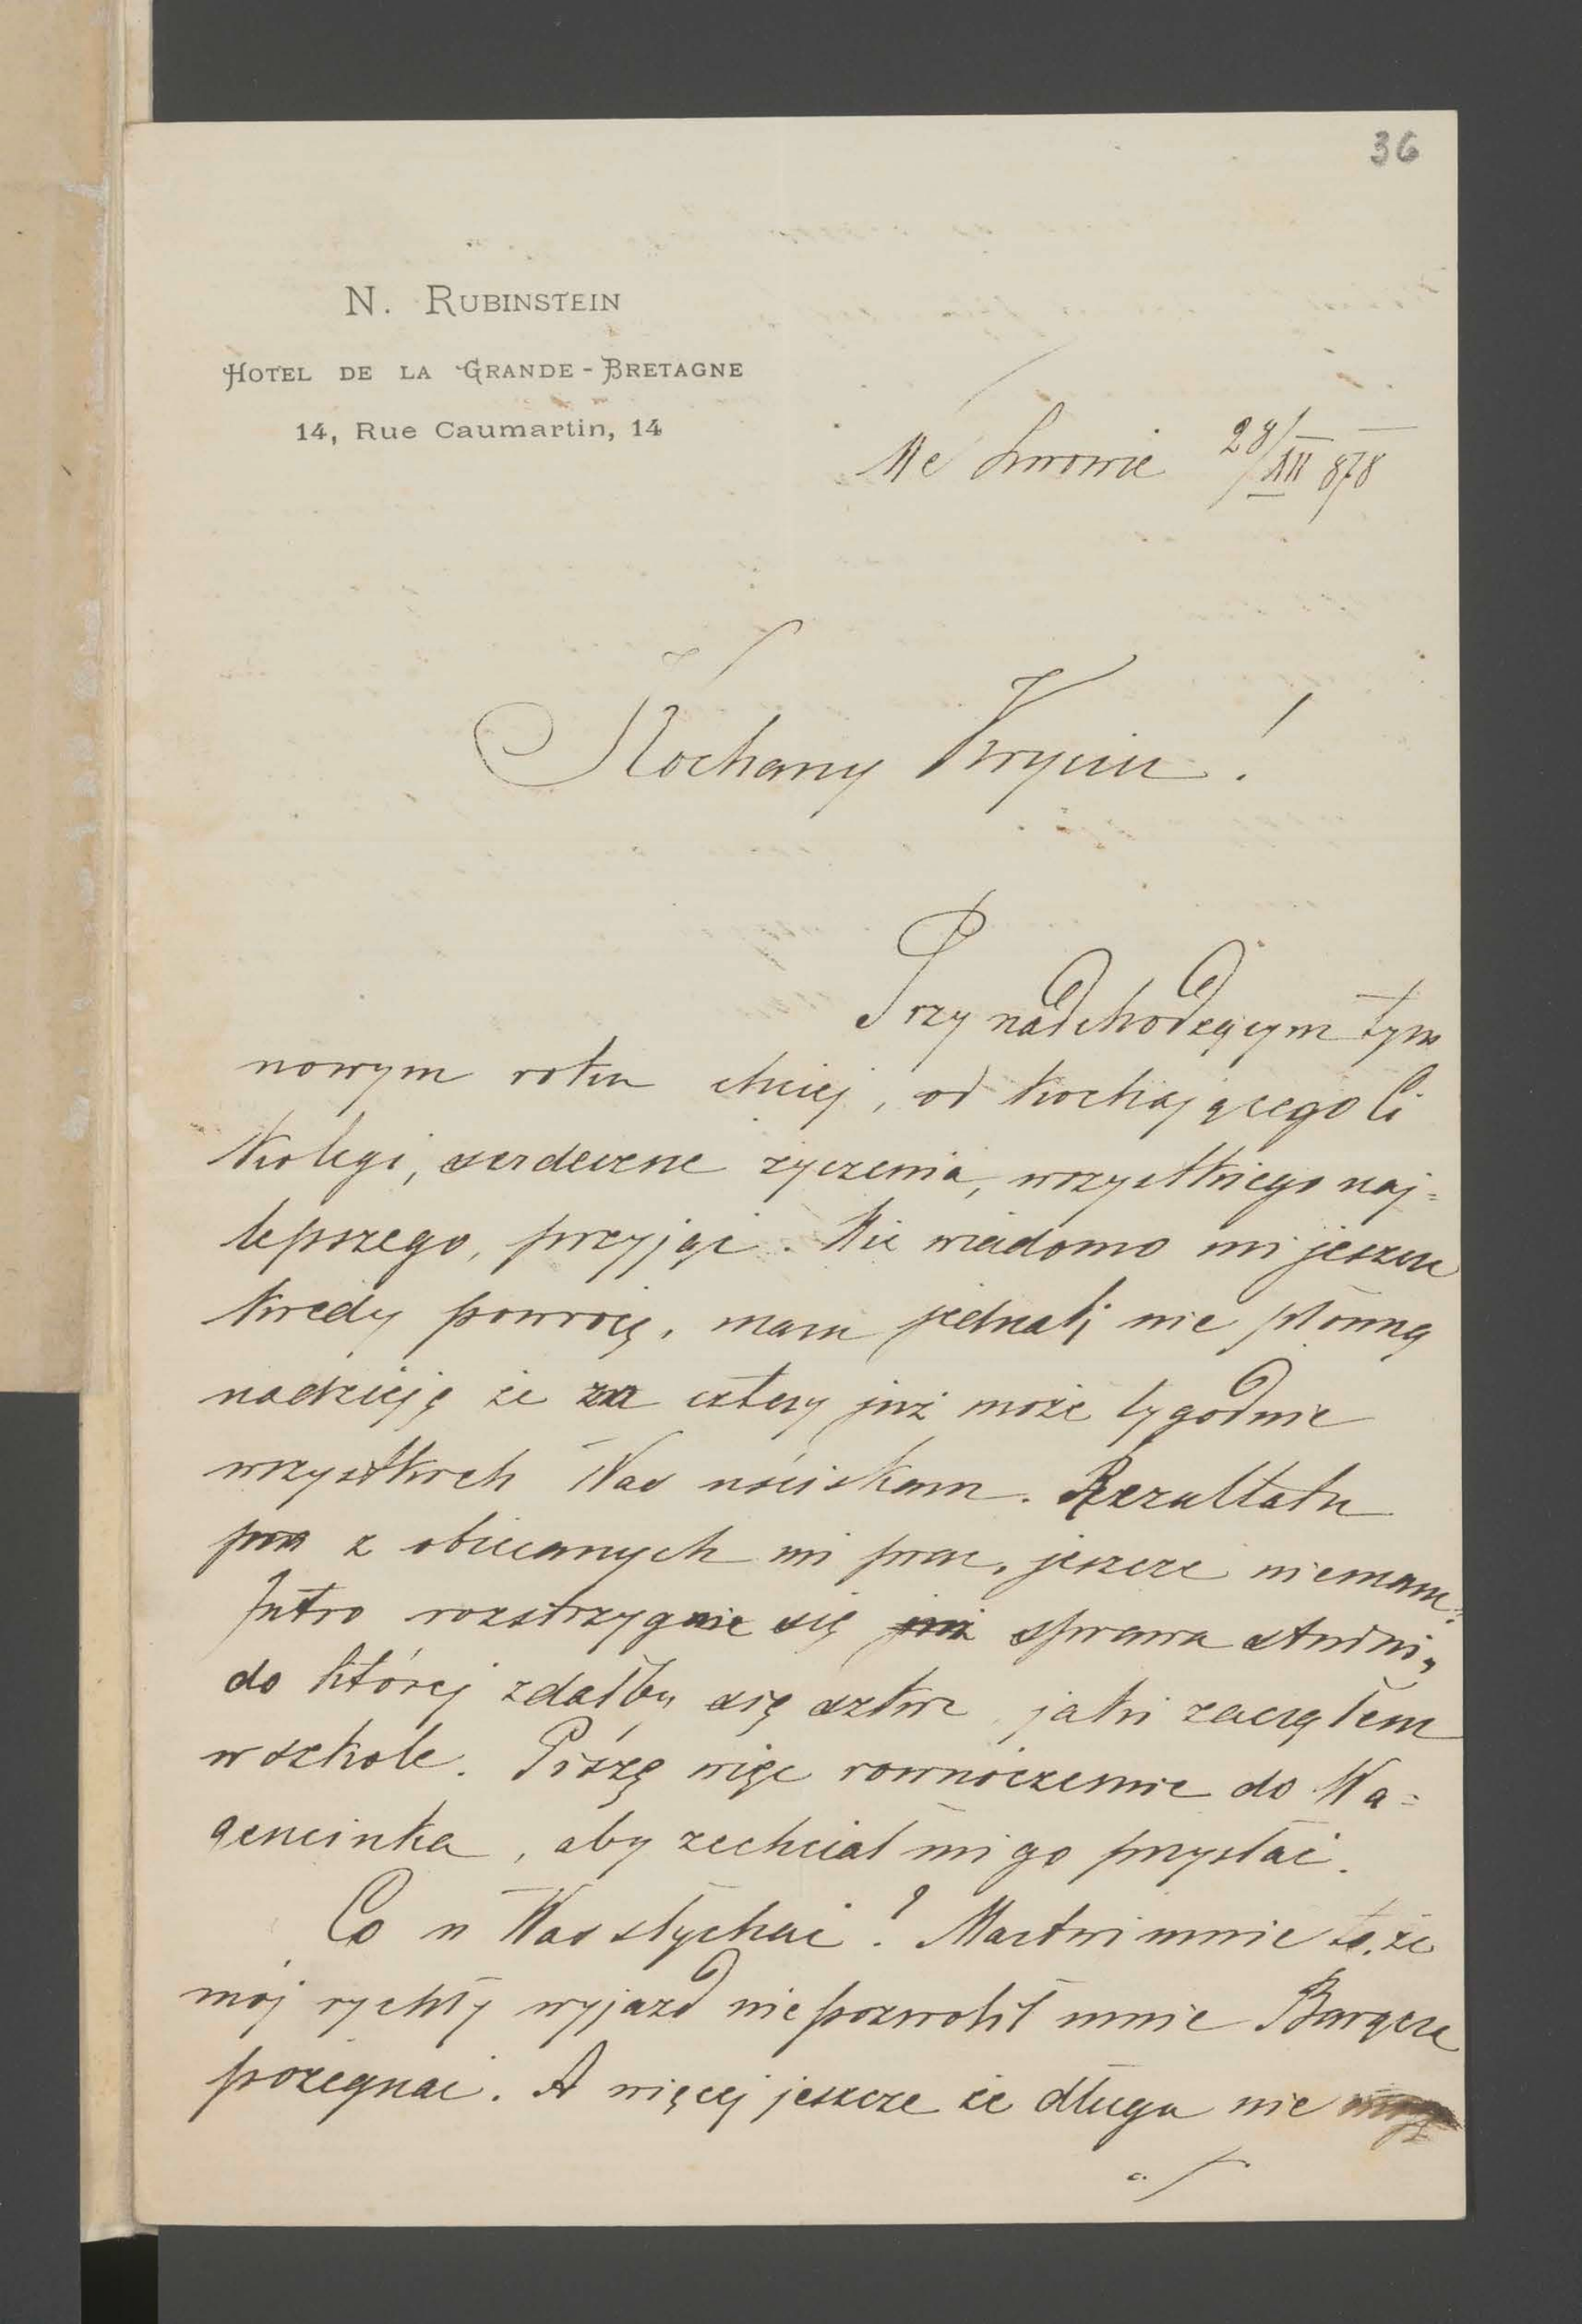 36
N. RUBINSTEIN
HOTEL DE LA GRANDE-BRETAGNE
14, Rue Caumartin, 14
We Lwowie 28/XII 878
Kochany !
Przy nadchodzącym tym
nowym roku chciej, od kochającego Ci
kolegi, serdeczne życzenia, wszystkiego naj=
lepszego, przyjąć. Nie wiadomo mi jeszcze
kiedy powrócę, mam jednak nie płonną
nadzieję że za cztery już może tygodnie
wszystkich Was uściskam. Rezultatu
z obiecanych mi prac, jeszcze niemam.
Jutro rozstrzygnie się już sprawa studni,
do której zdałby się szkic jaki zacząłem
w szkole. Piszę więc rownocześnie do Wa=
gencinka, aby zechciał mi go przysłać.
Co u Was słychać? Martwi mnie to, że
mój rychły wyjazd niepozwolił mnie Barącza
pożegnać. A więcej jeszcze że długu nie
./.